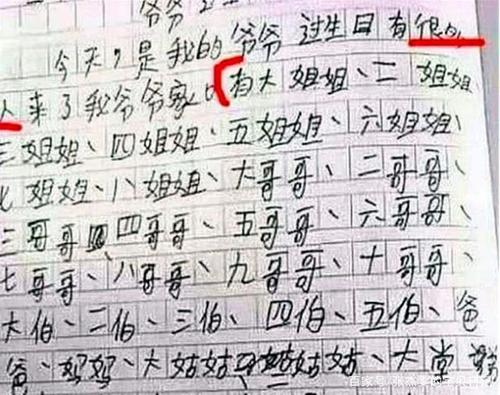 爷爷
今天,是我的爷爷过生日有很多
人来了我爷爷家。有大姐姐、二姐姐、
三姐姐、四姐姐、五姐姐、六姐姐、
七姐姐、八姐姐、大哥哥、二哥哥、
三哥哥、四哥哥、五哥哥、六哥哥、
七哥哥、八哥哥、九哥哥、十哥哥、
大伯、二伯、三伯、四伯、五伯、爸
爸、妈妈、大姑姑、姑姑、大堂
百家号